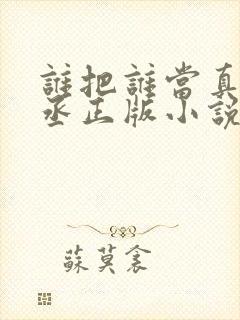 誰把誰當真
丞正版小說
蘇莫衾